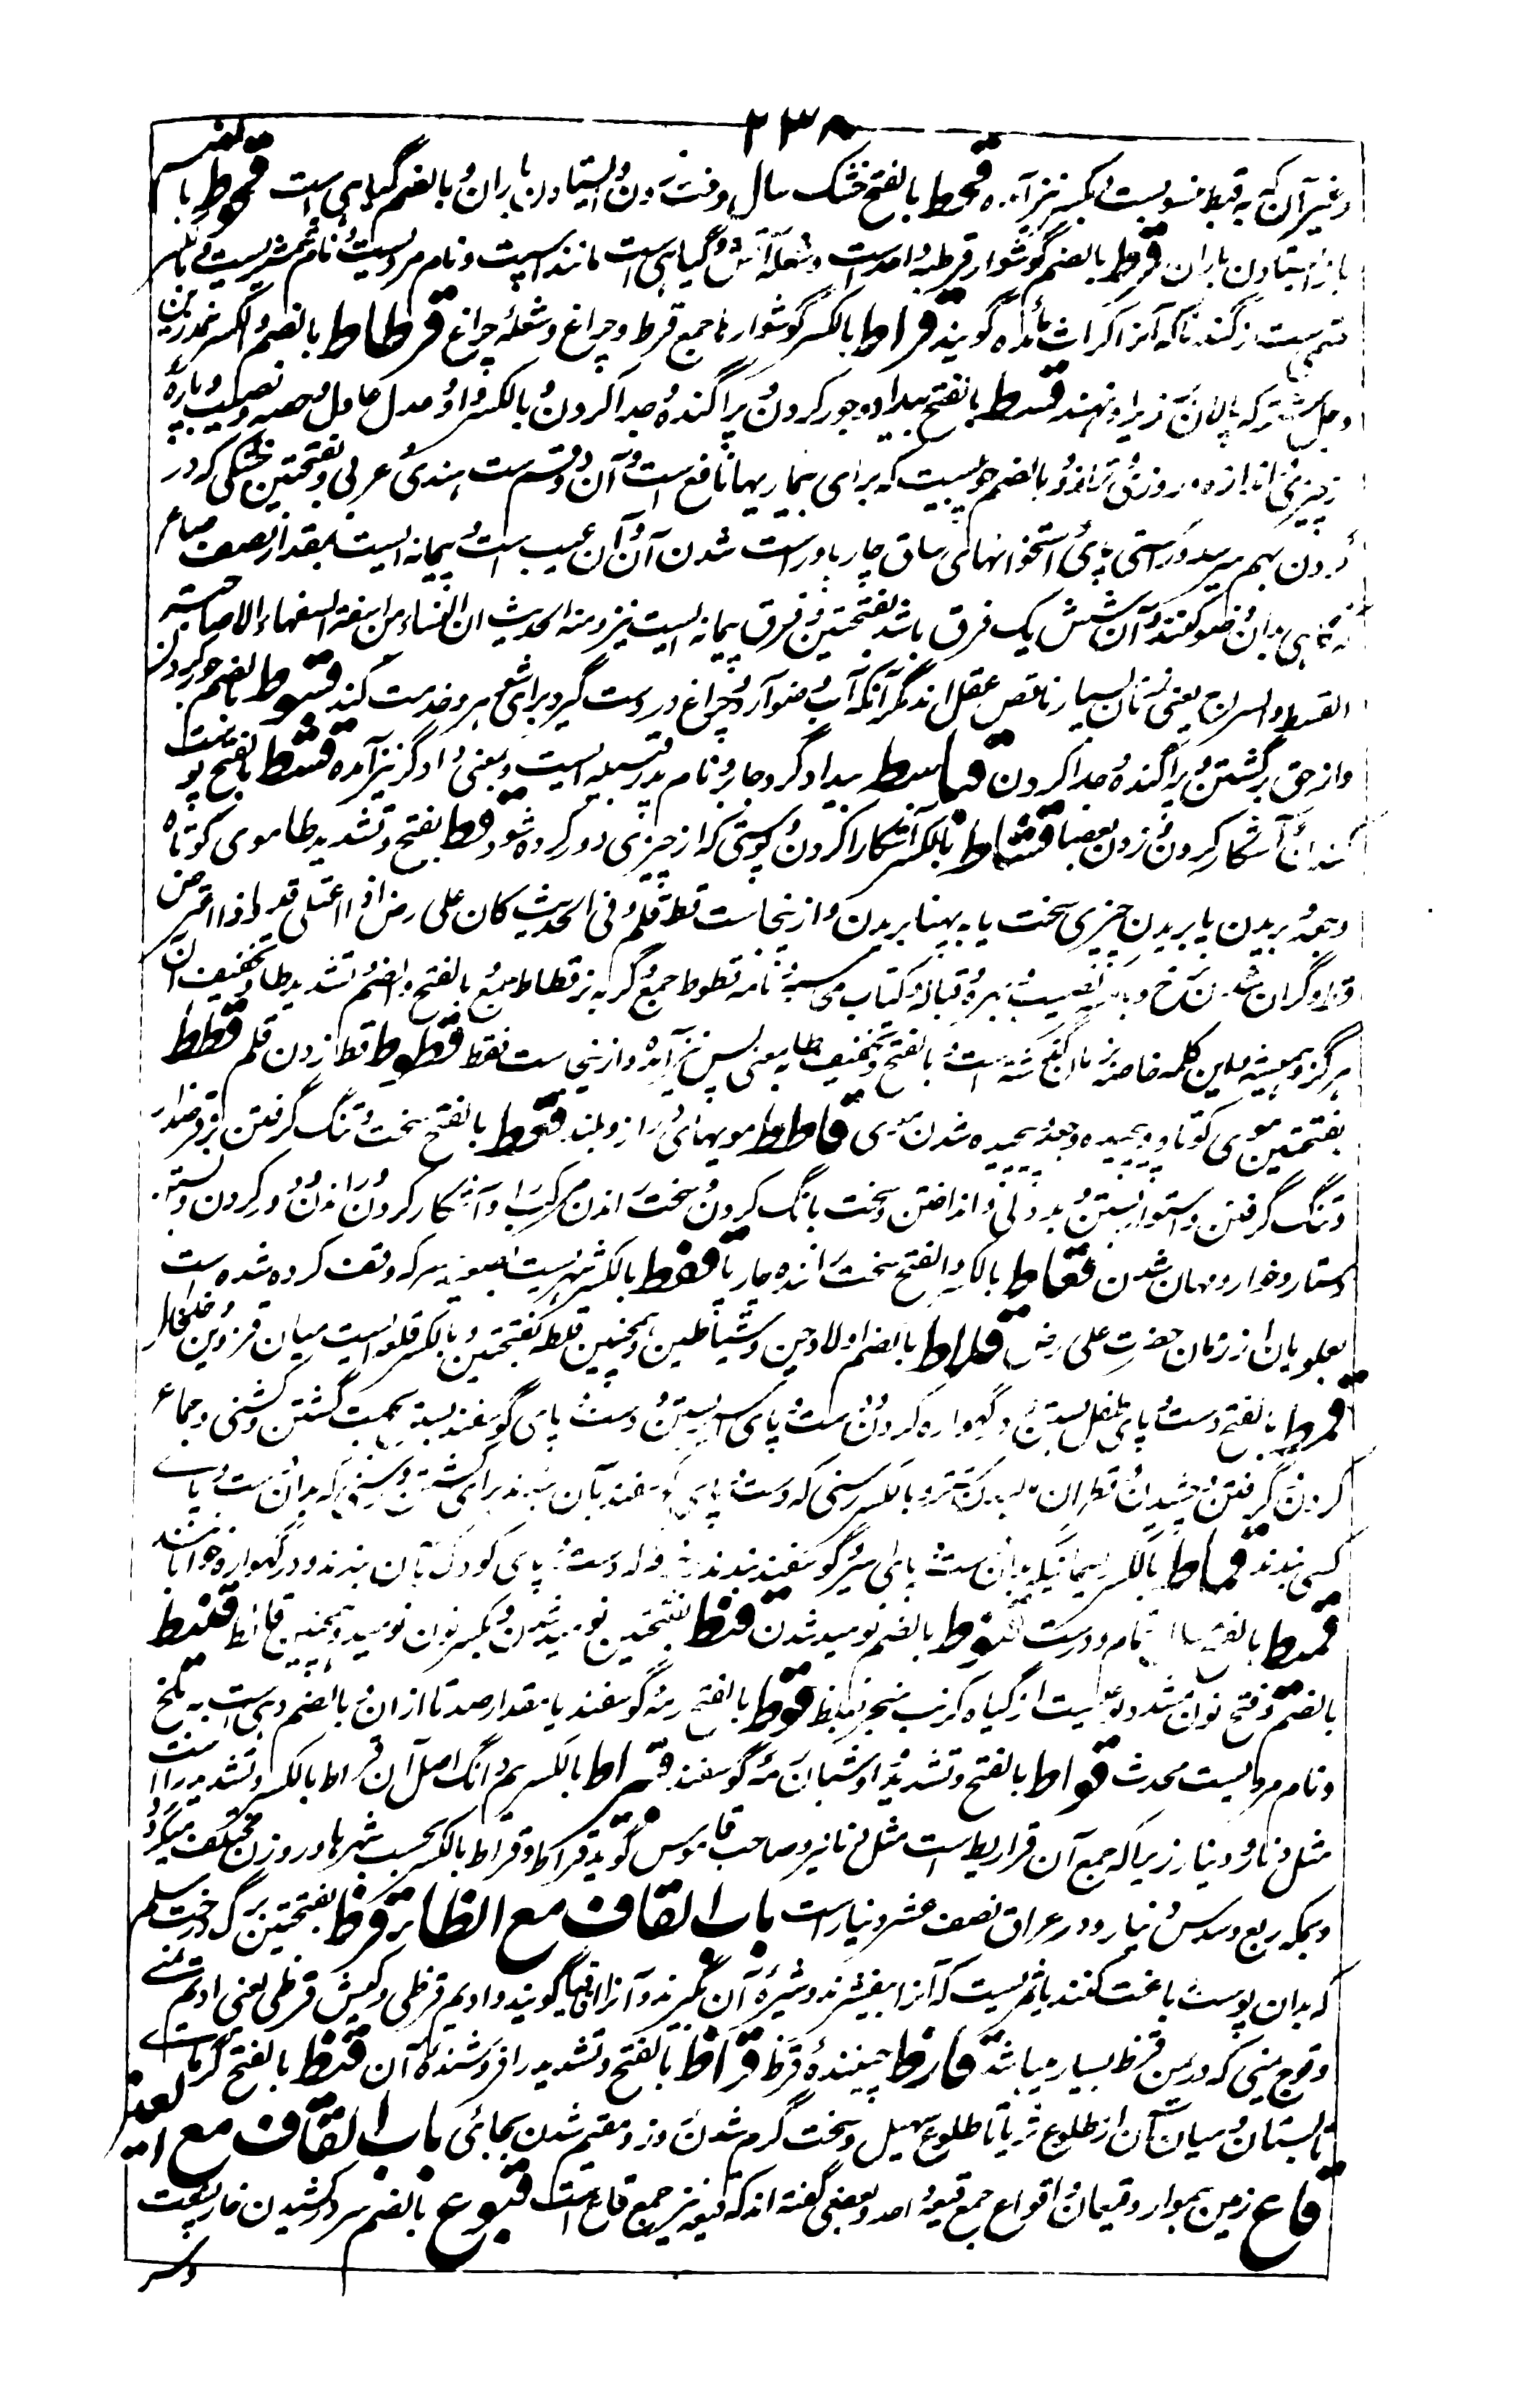 ٢٣٨
وغیر آن که به قبط منسوبست و بکسر نیز آمده قحط بالفتح خشک سال و سخت زدن و ایستادن باران و بالضم گیاهی است قحوط بالضم
باز ایستادن باران قرط بالضم گوشوار قرطه واحد است و شعله آتش و گیاهی است مانند اسپست و نام مردیست و نام شمشیریست و بالکسر
قسمی ست از گندنا که آنرا کراث مائده گویند قراط بالکسر گوشوارها جمع قرط و چراغ و شعله چراغ قرطاط بالضم و الکسر نمد زین
و جل شتر که پالان زیر او نهند قسط بالفتح بیداد و جور کردن و پراگنده و جدا کردن و بالکسر داد و عدل و عادل و حصه و نصیب و پاره
از چیزی و اندازه و روزی و ترازو و بالضم چوبیست که برای بیماریها نافع است و آن دو قسم ست هندی و عربی و بفتحتین خشکی که در
گردن بهم میرسد و راستی پای و استخوانهای ساق چارپا و راست شدن آن و آن عیب است و پیمانه ایست بمقدار نصف صاع
بدان وضو کنند و آن شش یک فرق باشد بفتحتین و فرق پیمانه ایست نیز و منه الحدیث ان النساء من اسفه السفهاء الا صاحبة
القسط والسراج یعنی زنان بسیار ناقص عقل اند مگر آنکه آب وضو آرد و چراغ در دست گیرد برای شوهر و خدمت کند قسوط بالضم جور کردن
و از حق برگشتن و پراگنده و جدا کردن قاسط بیدادگر و جابر و نام پدر قبیله ایست و بمعنی دادگر نیز آمده قشط بالفتح پوست
کندن و آشکار کردن و زدن بعصا قشاط بالکسر آشکارا کردن و پوستی که از چیزی دور کرده شود قط بفتح و تشدید طا موی کوتاه
و جعد و بریدن یا بریدن چیزی سخت یا به پهنا بریدن و ازینجاست قط قلم و فی الحدیث کان علی رض اذا اعتلی قد و اذا اعترض
قط و گران شدن نرخ و بالکسر نصیب و بهره و قباله و کتاب محاسبه نامه قطوط جمع و گربه نر قطاط جمع و بالفتح و الضم و تشدید طا و تخفیف آن
هرگز و همیشه و این کلمه خاصست بزمان گذشته است و بالفتح و تخفیف طا به معنی بس نیز آمده و ازینجاست فقط قطوط قط زدن قلم قطط
بفتحتین موی کوتاه و پیچیده و جعد و پیچیده شدن موی قاطط مویهای دراز و بلند قعط بالفتح سخت و تنگ گرفتن بر قرضدار
و تنگ گرفتن و استوار بستن و بددلی و انداختن و سخت بانگ کردن و سخت راندن مرکب را و آشکار کردن و راندن و دور کردن و بستن
دستار و خوار و مهان شدن قعاط بالکسر و الفتح سخت راننده چارپا قفط بالکسر شهریست بصعید مصر که وقف کرده شده است
بعلویان از زمان حضرت علی رض قلاط بالضم اولاد جن و شیاطین و همچنین قلط بفتحتین و بالکسر قلعه ایست میان قزوین و خلخال
قمط بالفتح دست و پای طفل بستن در گهواره کردن و دست و پای اسیر بستن و دست و پای گوسفند بستن بجهت گشتن و کشتنی و جماع
کردن و گرفتن و چشیدن و قطار کردن شتر و بالکسر رسنی که دست و پای گوسفند بآن بندند برای کشتن و رسنی که بدان دست و پای
کسی بندند قماط بالکسر ریسمانیکه بدان دست و پای سر گوسفند بندند و خرقه که دست و پای کودک بآن بندند و در گهواره خوابانند
قمیط بالفتح سال تمام و درست قنوط بالضم نومید شدن قنط بفتحتین نومید شدن و بکسر نون نومید و همچنین قانط قنبط
بالضم و فتح نون مشدد نوعیست از گیاه کرنب قوط بالفتح رمه گوسفند یا مقدار صد تا از ان و بالضم دهی است به بلخ
و نام مردیست محدث قواط بالفتح و تشدید واو شبان رمه گوسفند قیراط بالکسر نیم دانگ اصل آن قراط بالکسر و تشدید راست
مثل دنار و دینار زیرا که جمع آن قراریط است مثل دنانیر و صاحب قاموس گوید قیراط و قراط بالکسر بحسب شهرها وزن مختلف میگردد
و بمکه ربع و سدس دینار و در عراق نصف عشر دینار است باب القاف مع الظاء قرظ بفتحتین برگ درخت سلم
که بدان پوست دباغت کنند یا ثمریست که آنرا بیفشرند و شیره آن گیرند و آنرا اقاقیا گویند و ادیم قرظی و کبش قرظی یعنی ادیم یمنی
و قوچ یمنی که در یمن قرظ بسیار میباشد قارظ چینندهٔ قرظ قراظ بالفتح و تشدید را فروشنده آن قیظ بالفتح گرمای
تابستان و میان آن از طلوع ثریا تا طلوع سهیل و سخت گرم شدن روز و مقیم شدن بجائی باب القاف مع العین
قاع زمین هموار و قیعان و اقواع جمع قیعه واحد و بعضی گفته اند که قیعه نیز جمع قاع است قبوع بالضم سر درکشیدن خارپشت
و سر